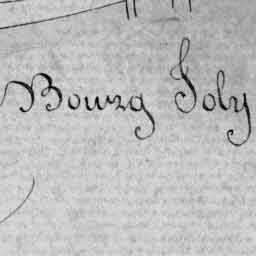 Bourg Joly